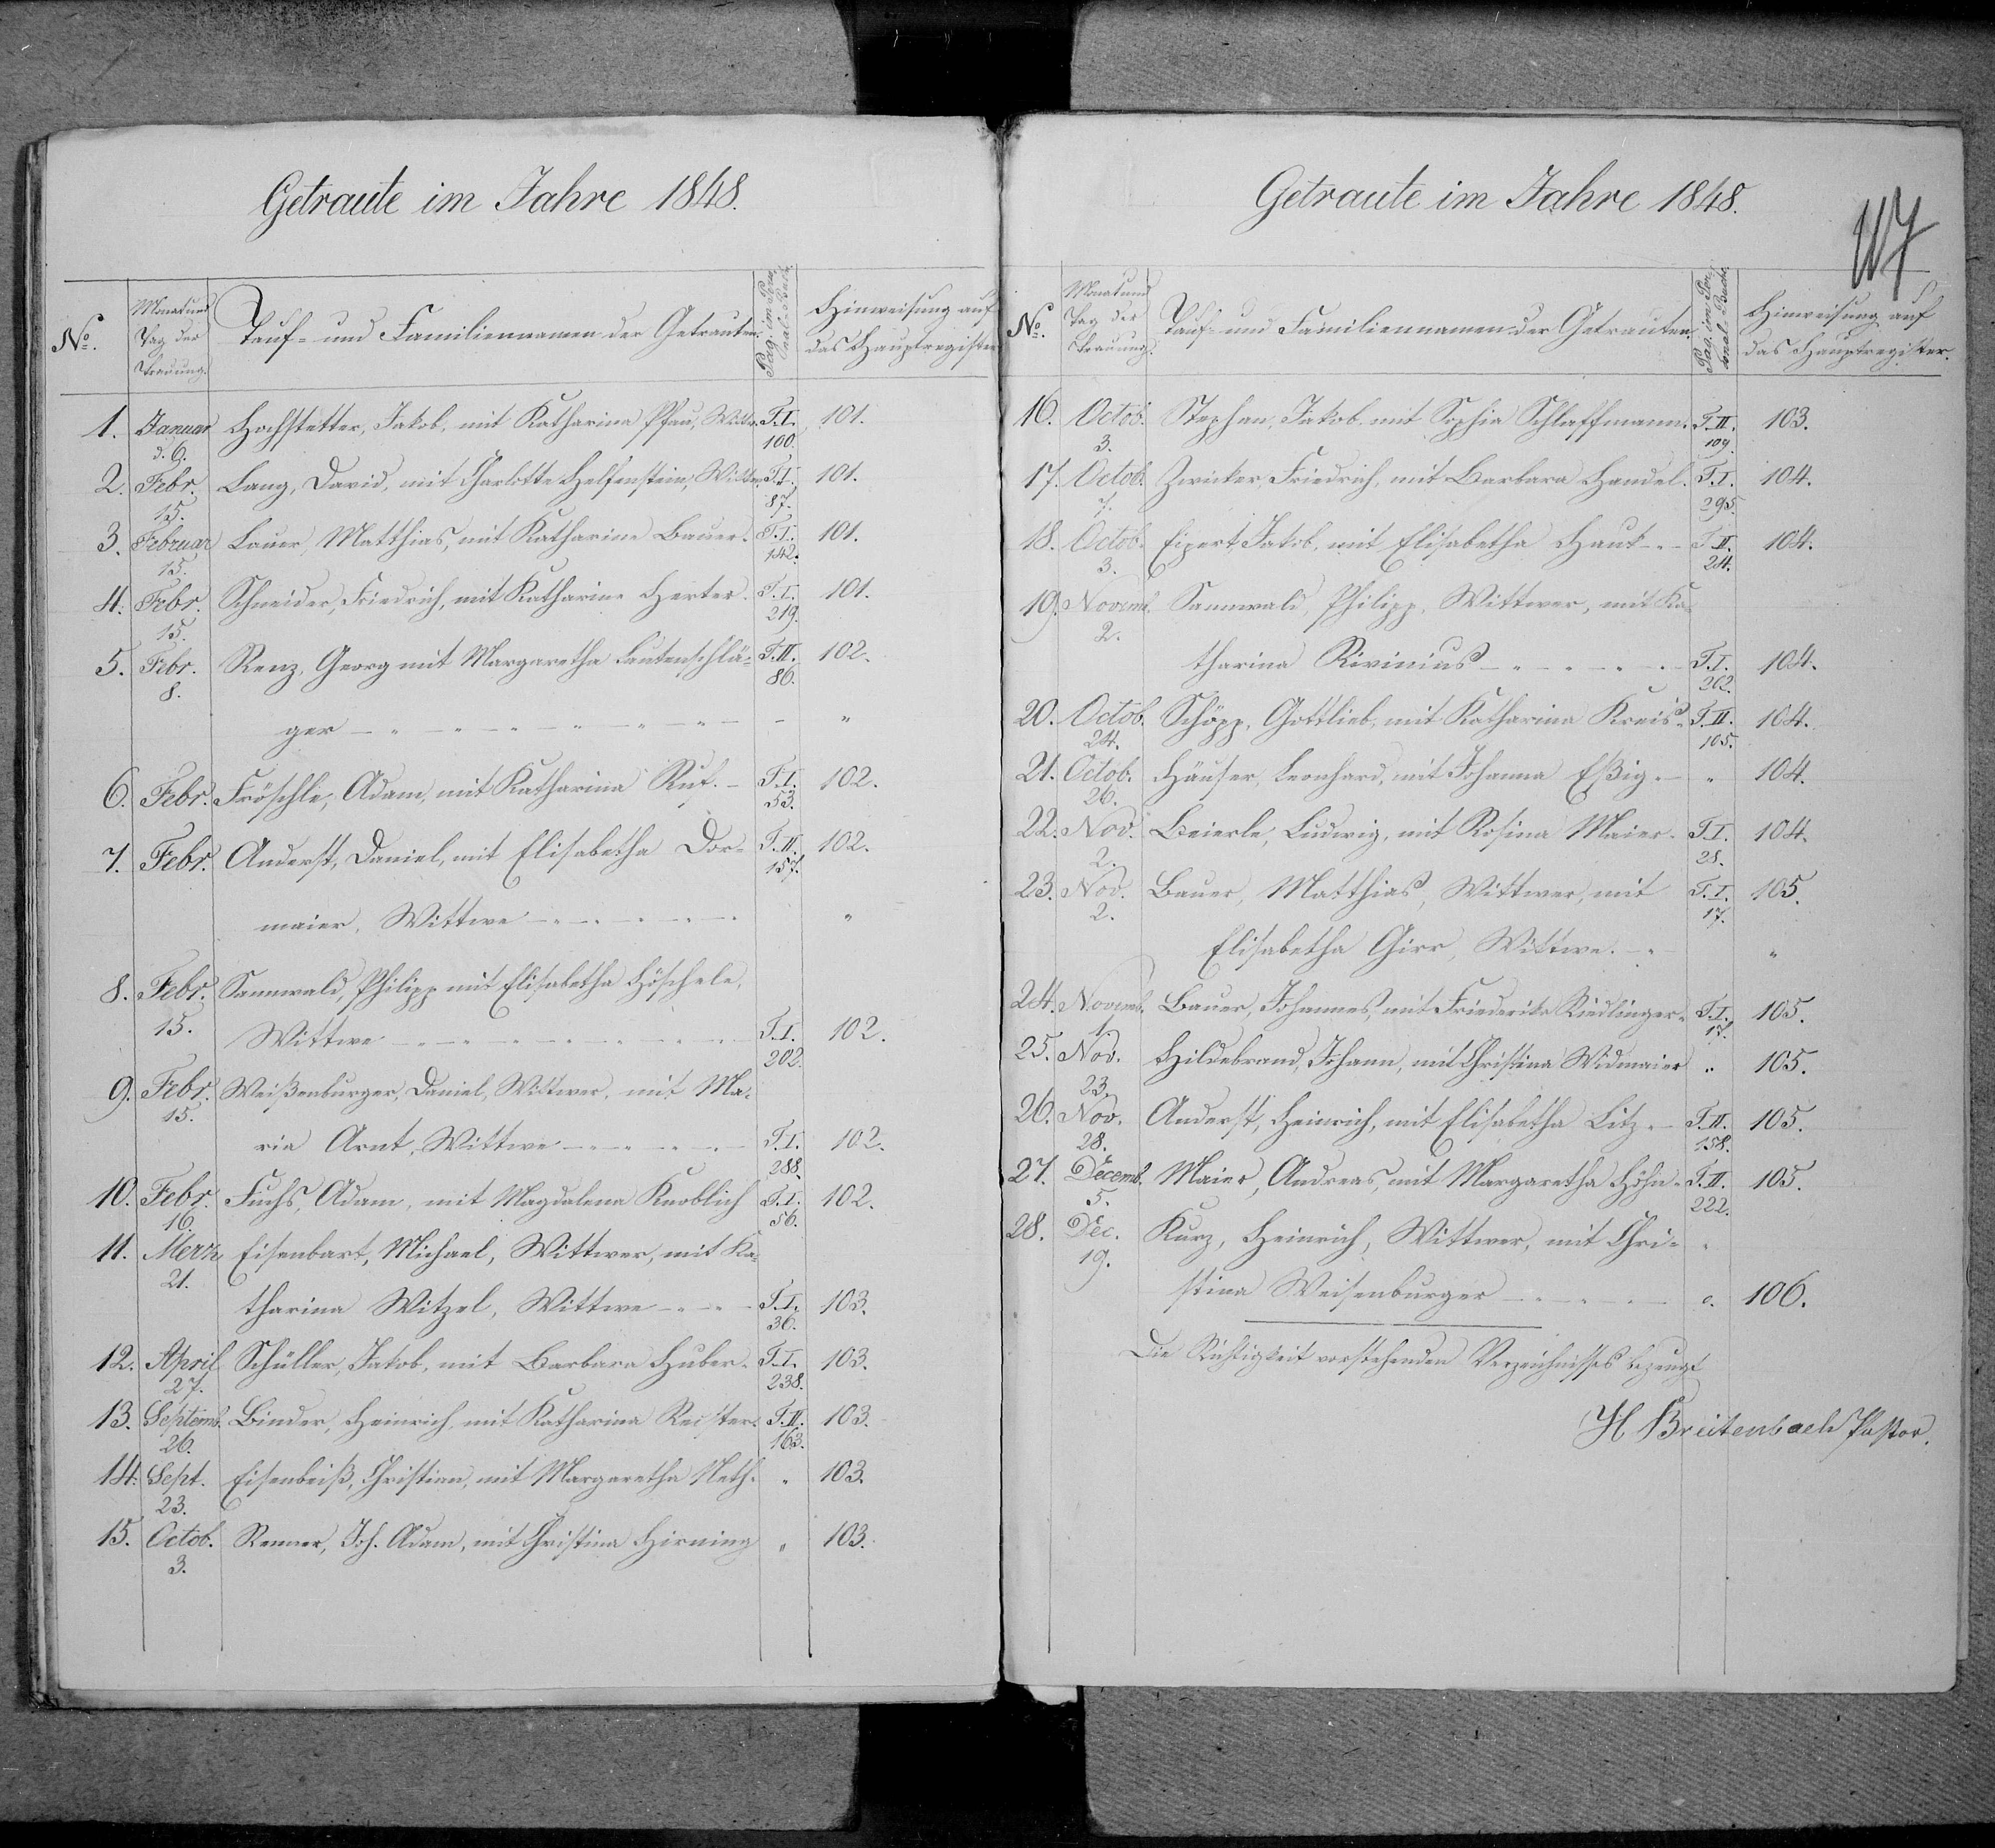 Getraute im Jahre 1848.
No.
Monat und
Tag der
Trauung.
Tauf- und Familiennamen der Getrauten.
Pag. im Perso-
nal-Buch.
Hinweisung auf
das Hauptregister
1. Januar Hochstetter, Jakob, mit Katharina Pfau, Wittw. T.I. 101.
d. 6. 100.
2. Febr. Lang, David, mit Charlotte Helfenstein, Wittwe T.I. 101.
15. 87.
3. Februar Lauer, Matthias, mit Katharine Bauer. T.I. 101.
15. 142.
4. Febr. Schneider, Friedrich, mit Katharine Herter. T.I. 101.
15. 219.
5. Febr. Renz, Georg mit Margaretha Lautenschlä- T.II. 102.
8. 86.
ger - " - " - " - " - " - - "
6. Febr. Fröschle, Adam, mit Katharina Ruf. - T.I. 102.
53.
7. Febr. Anderst, Daniel, mit Elisabetha Dor- T.II. 102.
157.
maier, Wittwe - " - " - " - "
8. Febr. Sannwald, Philipp mit Elisabetha Höschele,
15. Wittwe - " - " - " - " - T.I. 102.
202.
9. Febr. Weißenburger, Daniel, Wittwer, mit Ma-
15.
ria Arnt, Wittwe - " - " - " - T.I. 102.
288.
10. Febr. Fuchs, Adam, mit Magdalena Knoblich T.I. 102.
16. 56.
11. Merz Eisenbart, Michael, Wittwer, mit Ka-
21.
tharina Witzel, Wittwe - " - " - T.I. 103.
36.
12. April Schüller, Jakob, mit Barbara Huber. T.I. 103.
27. 238.
13. Septemb. Binder, Heinrich, mit Katharina Reister. T.II. 103.
26. 163.
14. Sept. Eisenbeiß, Christian, mit Margaretha Neth. " 103.
23.
15. Octob. Renner, Joh. Adam, mit Christina Hirning " 103.
3.
Getraute im Jahre 1848.
117
No.
Monat und
Tag der
Trauung.
Tauf- und Familiennamen der Getrauten.
Pag. im Per-
sonal-Buche.
Hinweisung auf
das Hauptregister.
16. Octob. Stephan, Jakob mit Sophia Schlaffmann. T.II. 103.
3. 109.
17. Octob. Zwicker, Friedrich, mit Barbara Handel. T.I. 104.
7. 295.
18. Octob. Eipert, Jakob, mit Elisabetha Hauk - " - T.II. 104.
3. 24.
19. Novemb. Sannwald, Philipp, Wittwer, mit Ka-
2.
tharina Rivinius - " - " - " - " - T.I. 104.
202.
20. Octob. Schöpp, Gottlieb, mit Katharina Kreis - T.II. 104.
24. 105.
21. Octob. Häuser, Leonhard, mit Johanna Eßig. - " 104.
26.
22. Nov. Beierle, Ludwig, mit Rosina Maier - T.I. 104.
2. 28.
23. Nov. Bauer, Matthias, Wittwer, mit T.I. 105.
2. 17.
Elisabetha Girr, Wittwe. - " - "
24. Novemb. Bauer, Johannes, mit Friederike Riedlinger. T.I. 105.
1. 17.
25. Nov. Hildebrand, Johann, mit Christina Widmaier " 105.
23.
26. Nov. Anderst, Heinrich, mit Elisabetha Litz. - T.II. 105.
28. 158.
27. Decemb. Maier, Andreas, mit Margaretha Höhn - T.II. 105.
5. 222.
28. Dec. Kurz, Heinrich, Wittwer, mit Chri- "
19.
stina Weisenburger - " - " - " - 106.
Die Richtigkeit vorstehenden Verzeichnisses bezeugt
H Breitenbach Pastor.